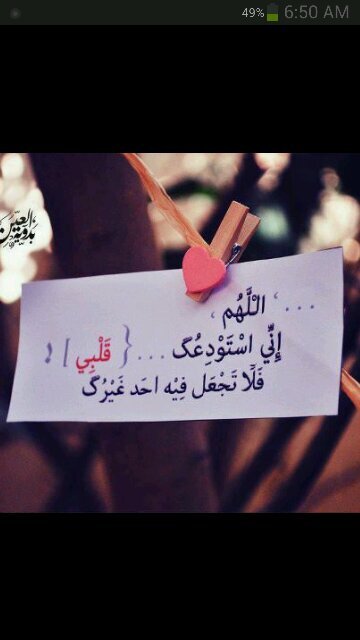 49% 6:50 AM
بدوية العين
... ، اللَّهُم ،
إِنِّي اسْتَوْدِعُكـ ... { قَلْبِي ] !
فَلَا تَجْعَل فِيْه احَد غَيْرُكـ